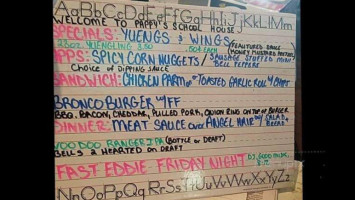 AaBbCcDdEeFfGgHhIiJjKkLlMm
WELCOME TO PAPPY'S SCHOOL HOUSE
SPECIALS: YUENGS & WINGS
23oz. YUENGLING 3.50 .50¢ EACH FEAUTURED SAUCE
HONEY MUSTARD
APPS: SPICY CORN NUGGETS / SAUSAGE STUFFED
CHOICE OF DIPPING SAUCE BELL PEPPERS
SANDWICH: CHICKEN PARM ON TOASTED GARLIC ROLL W/
BRONCO BURGER W/FF
BBQ, BACON, CHEDDAR, PULLED PORK, ONION RING ON TOP OF BURGER
DINNER: MEAT SAUCE OVER ANGEL HAIR W/ SALAD,
BREAD
VOO DOO RANGER IPA (BOTTLE OR DRAFT)
BELLS 2 HEARTED ON DRAFT
FAST EDDIE FRIDAY NIGHT DJ,
NnOoPpQqRrSsTtUuVvWwXxYyZz